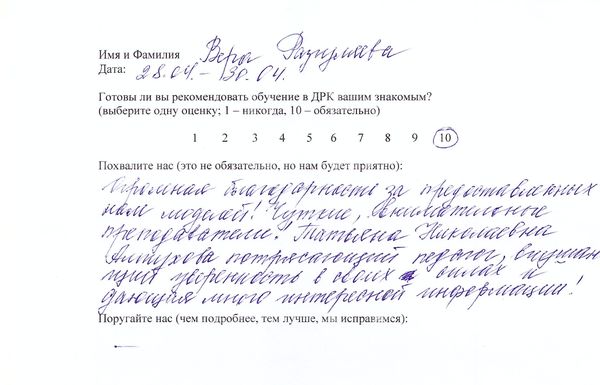 Имя и Фамилия Вера
Дата: 28.04.-30.04.
Готовы ли вы рекомендовать обучение в ДРК вашим знакомым?
(выберите одну оценку; 1 – никогда, 10 – обязательно)
1 2 3 4 5 6 7 8 9 10
Похвалите нас (это не обязательно, но нам будет приятно):
Огромная благодарность за предоставленных
нам моделей! Чуткие, внимательные
преподаватели! Татьяна Николаевна
потрясающий педагог, внушаю
щий уверенность в своих силах и
дающая много интересной информации!
Поругайте нас (чем подробнее, тем лучше, мы исправимся):
—